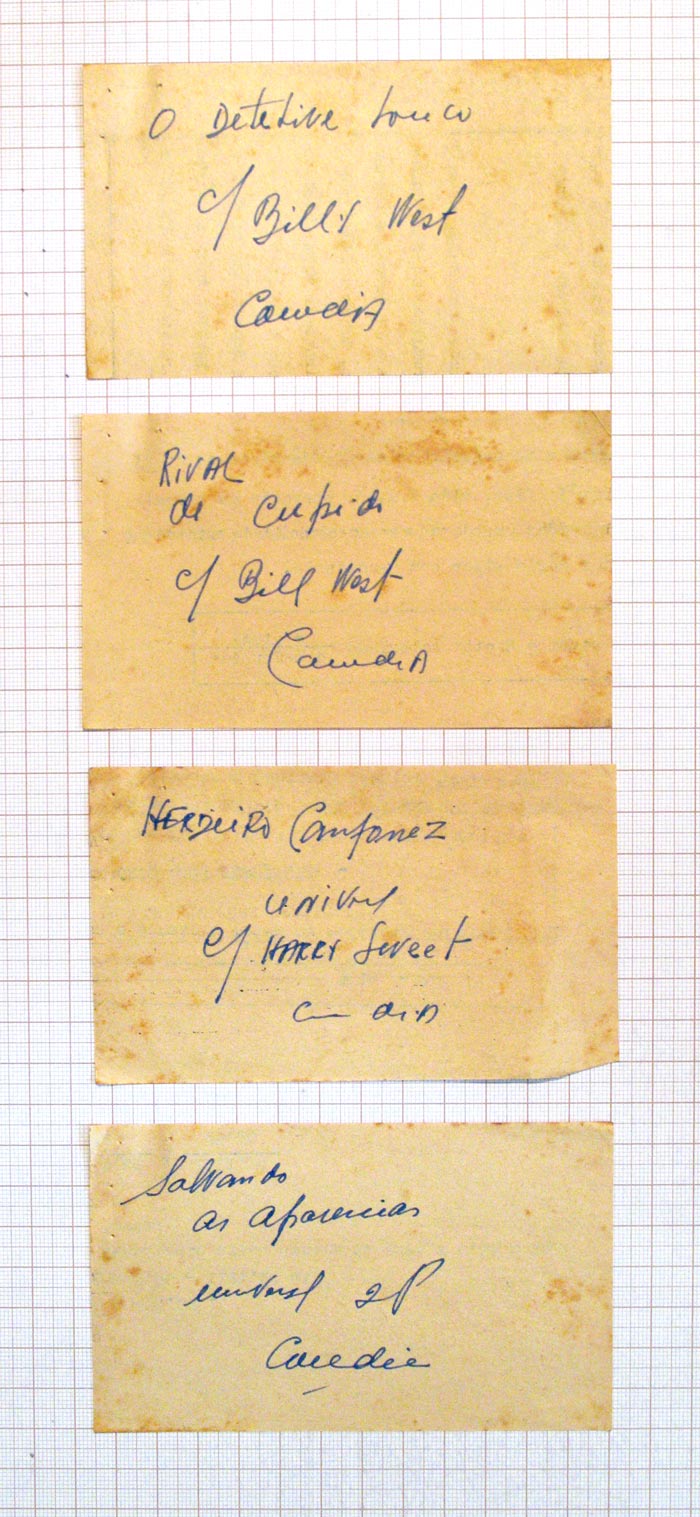 O Detetive Louco
c/ Billy West
Comedia
Rival
de Cupido
c/ Bill West
Comedia
HERDEIRO Camponez
Univsl
c/ HARRY Sweet
Comedia
Salvando
as Aparencias
Universal 2P
Comedia